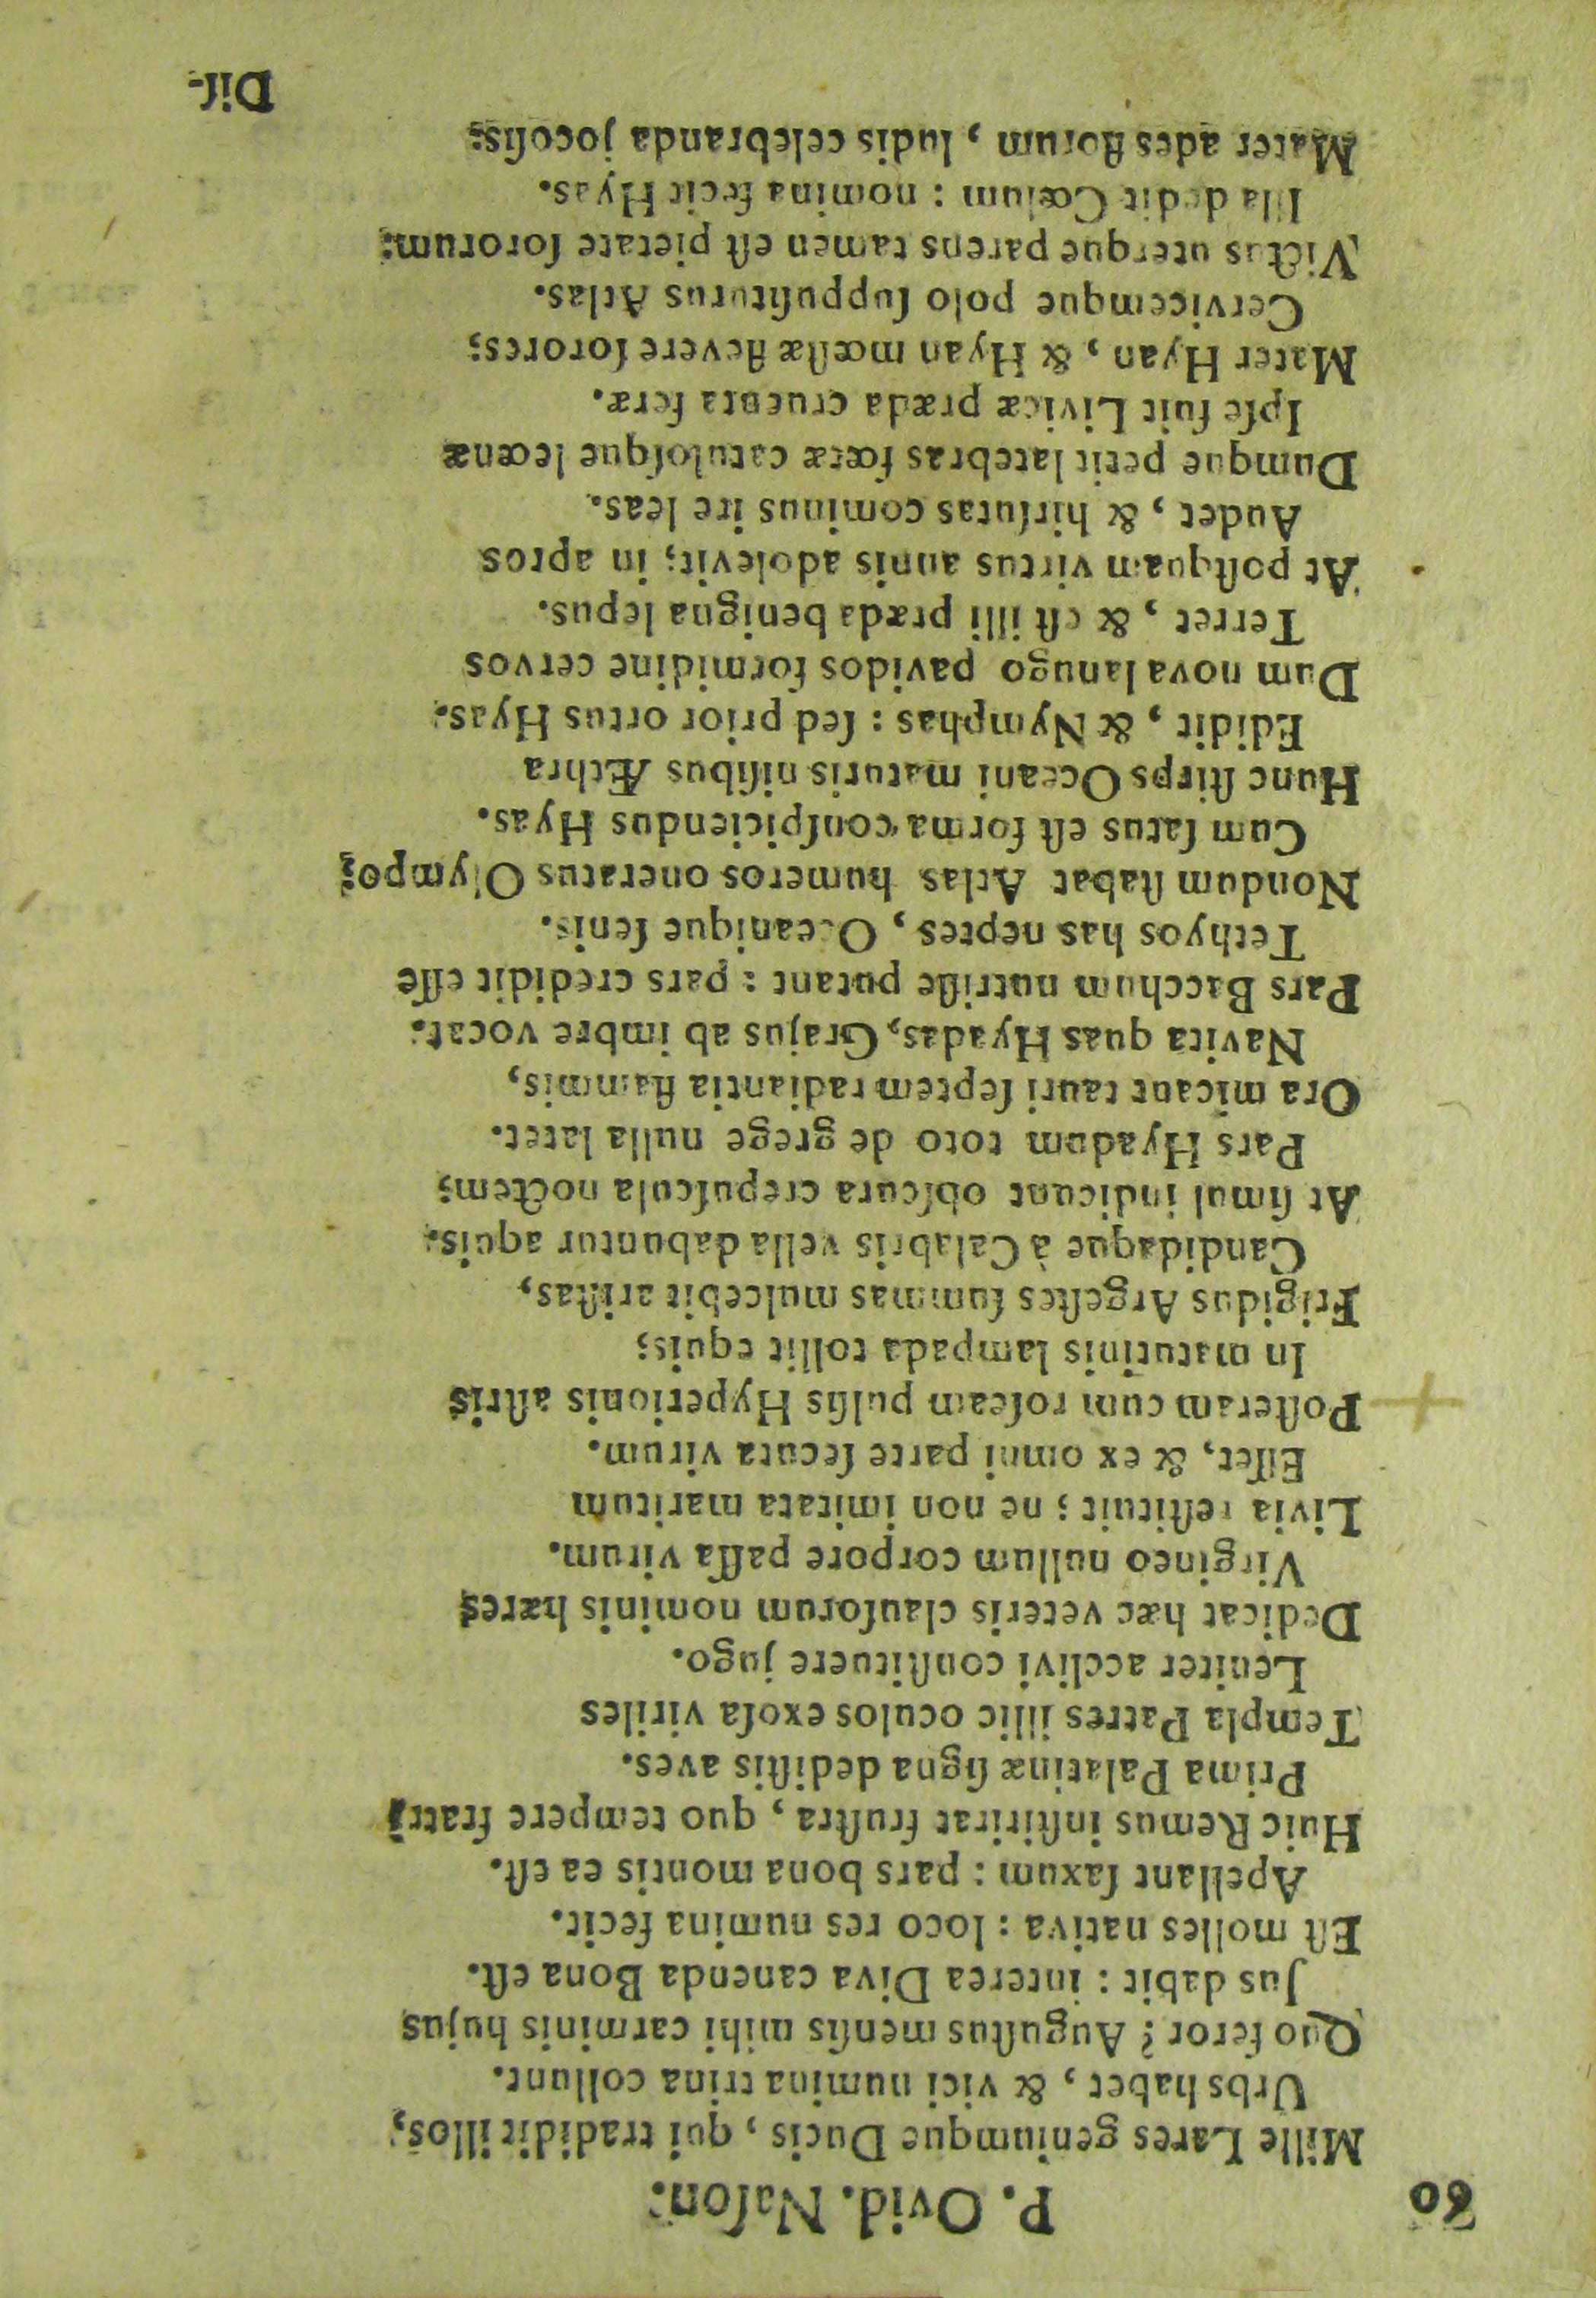 80 P. Ovid. Naſon:
Mille Lares geniumque Ducis, qui tradidit illos,
Urbs habet, & vici numina trina collunt.
Quo feror? Auguſtus menſis mihi carminis hujus
Jus dabit: interea Diva canenda Bona eſt.
Eſt molles nativa: loco res numina fecit.
Apellant ſaxum: pars bona montis ea eſt.
Huic Remus inſtirirat fruſtra, quo tempere fratri
Prima Palatinæ ſigna dediſtis aves.
Templa Patres illic oculos exoſa viriles
Leniter acclivi conſtituere jugo.
Dedicat hæc veteris clauſorum nominis hæres
Virgineo nullum corpore paſſa virum.
Livia reſtituit; ne non imitata maritum
Eſſet, & ex omni parte ſecuta virum.
Poſteram cum roſeam pulſis Hyperionis aſtris
In matutinis lampada tollit equis;
Frigidus Argeſtes ſummas mulcebit ariſtas,
Candidaque à Calabris vella dabuntur aquis.
At ſimul indicunt obſcura crepuſcula noctem;
Pars Hyadum toto de grege nulla latet.
Ora micant tauri ſeptem radiantia flammis,
Navita quas Hyadas, Grajus ab imbre vocat.
Pars Bacchum nutriſſe putant: pars credidit eſſe
Tethyos has neptes, Oceanique ſenis.
Nondum ſtabat Atlas humeros oneratus Olympo;
Cum ſatus eſt forma conſpiciendus Hyas.
Hunc ſtirps Oceani maturis niſibus Æthra
Edidit, & Nymphas: ſed prior ortus Hyas.
Dum nova lanugo pavidos formidine cervos
Terret, & eſt illi præda benigna lepus.
At poſtquam virtus annis adolevit; in apros
Audet, & hirſutas cominus ire leas.
Dumque petit latebras fœtæ catuloſque leœnæ
Ipſe fuit Livicæ præda cruenta feræ.
Mater Hyan, & Hyan mœſtæ flevere ſorores;
Cervicemque polo ſuppuſiturus Atlas.
Victus uterque parens tamen eſt pietate ſororum:
Illa dedit Cœlum: nomina fecit Hyas.
Mater ades florum, ludis celebranda jocoſis:
Diſ-